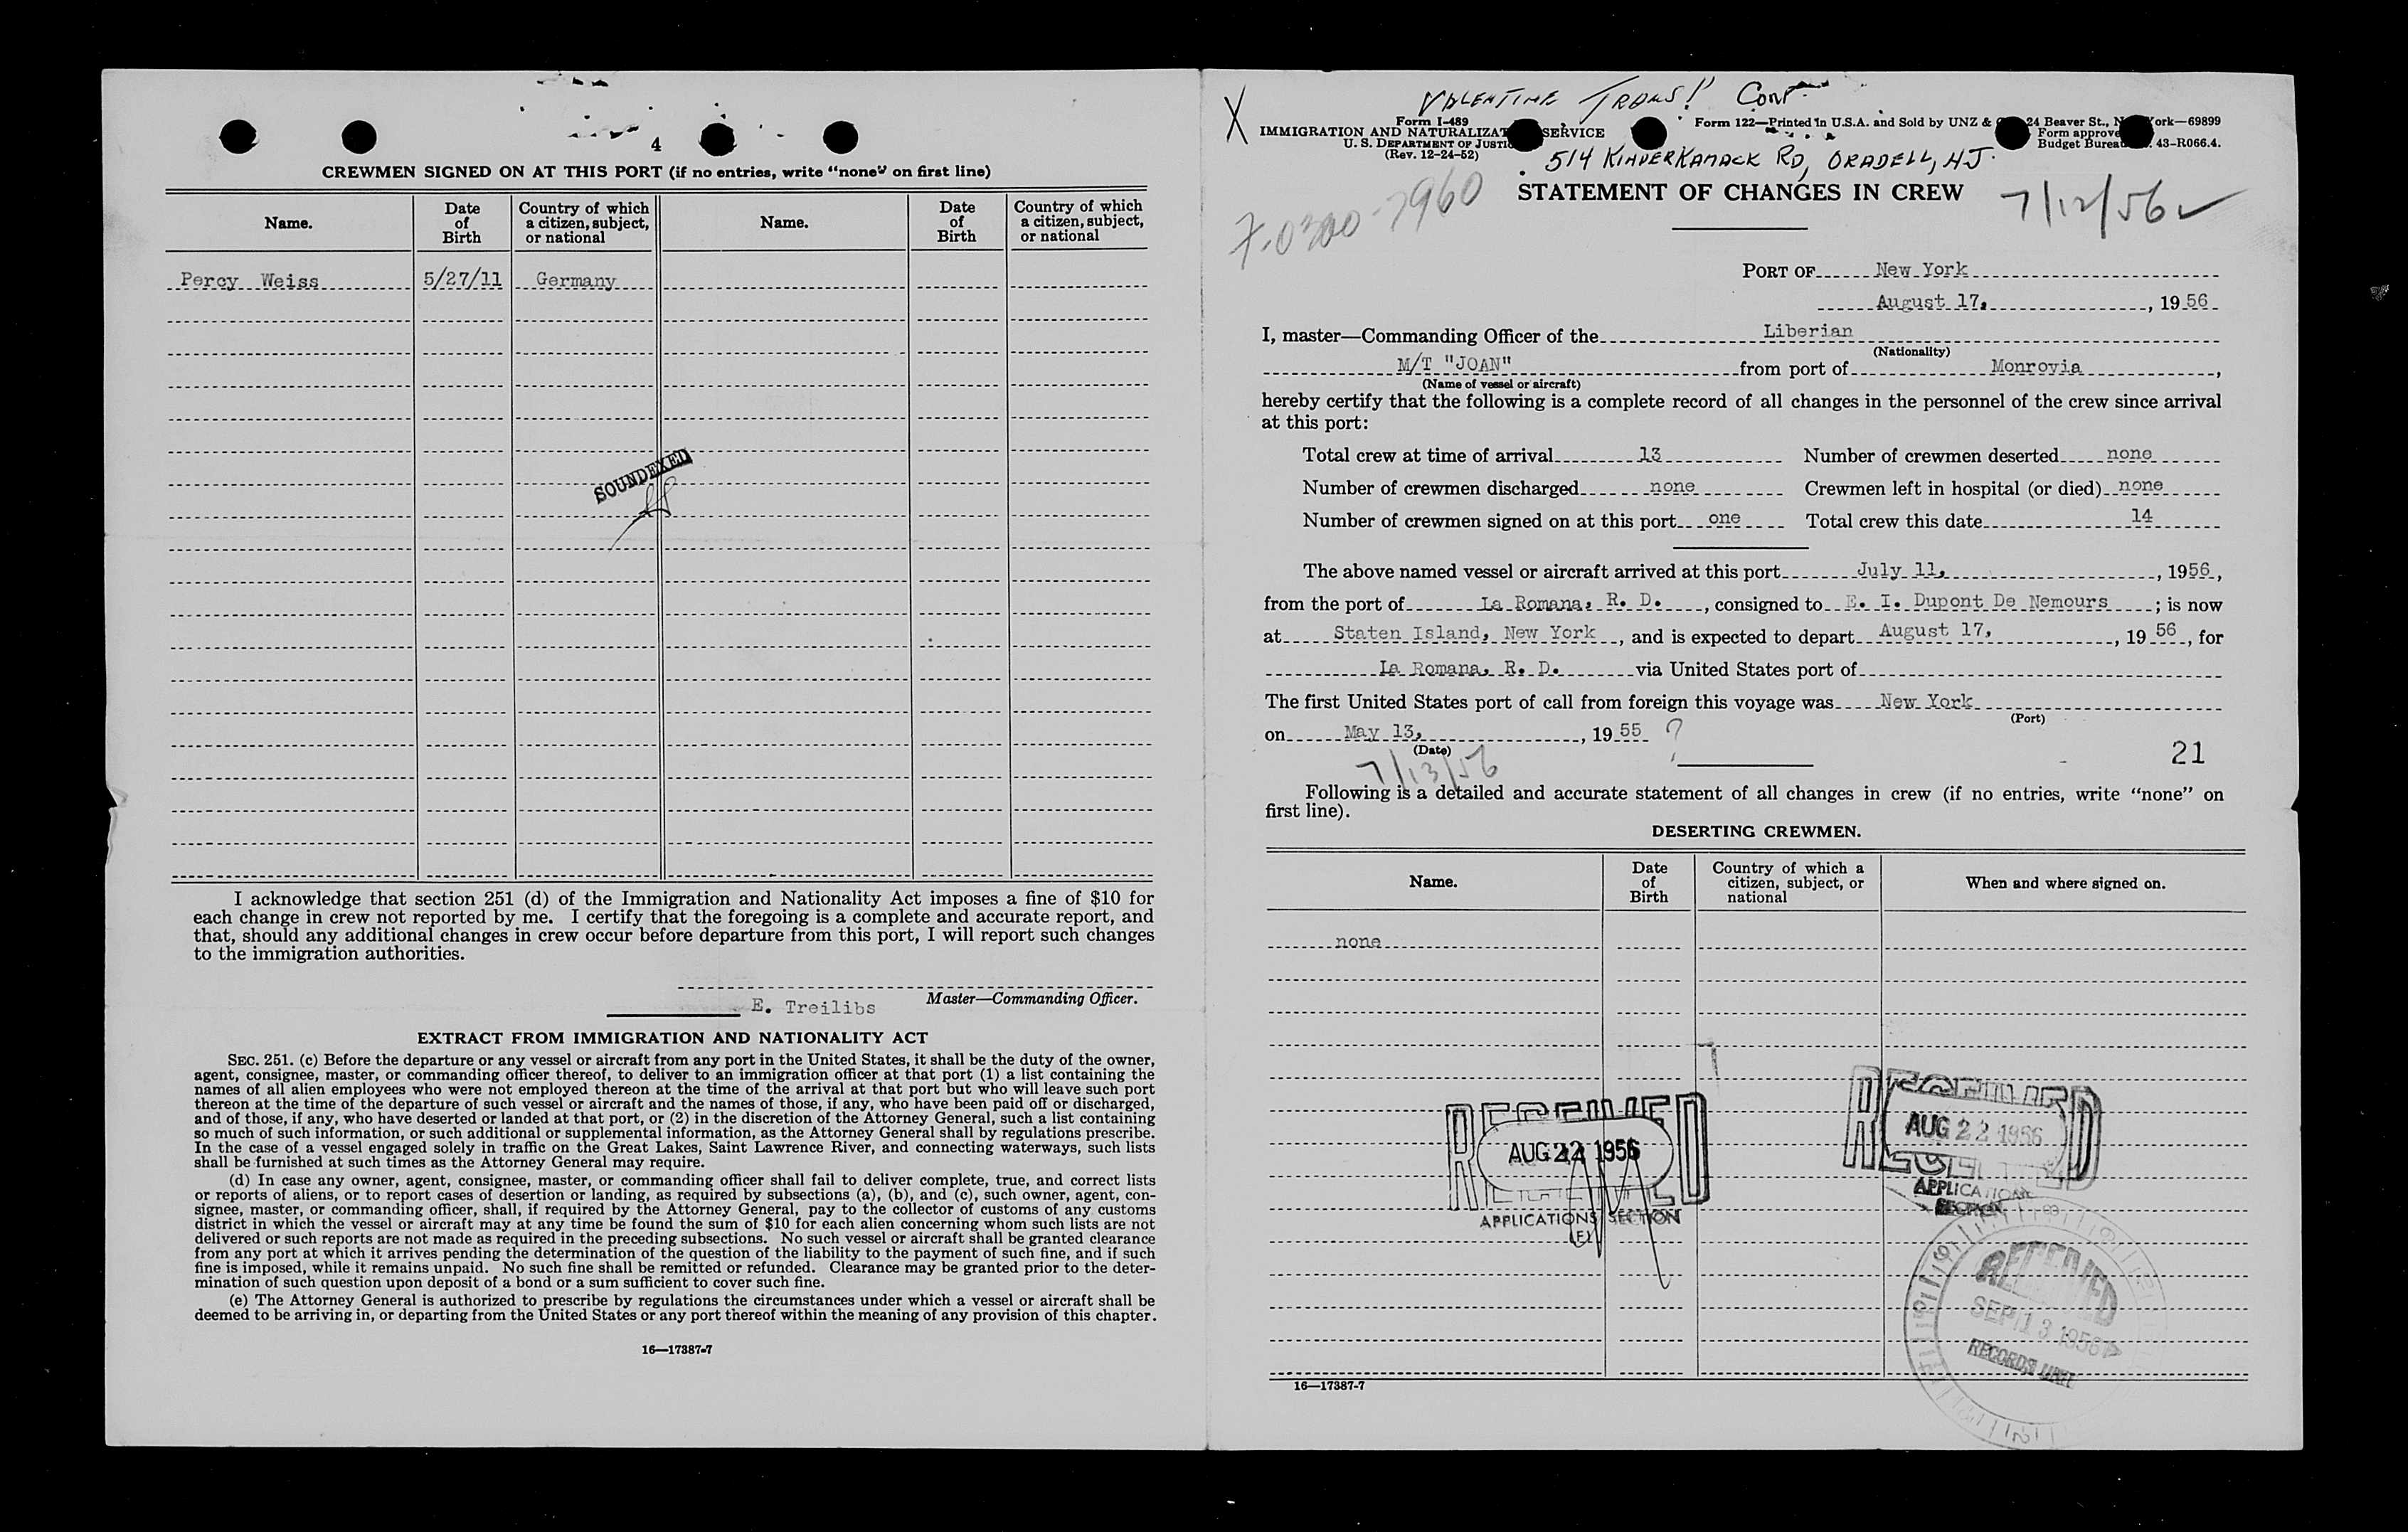 4
CREWMEN SIGNED ON AT THIS PORT (if no entries, write "none" on first line)
Name. Date of Birth Country of which a citizen, subject, or national Name. Date of Birth Country of which a citizen, subject, or national
Percy Weiss 5/27/11 Germany
SOUNDEXED
I acknowledge that section 251 (d) of the Immigration and Nationality Act imposes a fine of $10 for
each change in crew not reported by me. I certify that the foregoing is a complete and accurate report, and
that, should any additional changes in crew occur before departure from this port, I will report such changes
to the immigration authorities.
E. Treilibs Master—Commanding Officer.
EXTRACT FROM IMMIGRATION AND NATIONALITY ACT
SEC. 251. (c) Before the departure or any vessel or aircraft from any port in the United States, it shall be the duty of the owner,
agent, consignee, master, or commanding officer thereof, to deliver to an immigration officer at that port (1) a list containing the
names of all alien employees who were not employed thereon at the time of the arrival at that port but who will leave such port
thereon at the time of the departure of such vessel or aircraft and the names of those, if any, who have been paid off or discharged,
and of those, if any, who have deserted or landed at that port, or (2) in the discretion of the Attorney General, such a list containing
so much of such information, or such additional or supplemental information, as the Attorney General shall by regulations prescribe.
In the case of a vessel engaged solely in traffic on the Great Lakes, Saint Lawrence River, and connecting waterways, such lists
shall be furnished at such times as the Attorney General may require.
(d) In case any owner, agent, consignee, master, or commanding officer shall fail to deliver complete, true, and correct lists
or reports of aliens, or to report cases of desertion or landing, as required by subsections (a), (b), and (c), such owner, agent, con-
signee, master, or commanding officer, shall, if required by the Attorney General, pay to the collector of customs of any customs
district in which the vessel or aircraft may at any time be found the sum of $10 for each alien concerning whom such lists are not
delivered or such reports are not made as required in the preceding subsections. No such vessel or aircraft shall be granted clearance
from any port at which it arrives pending the determination of the question of the liability to the payment of such fine, and if such
fine is imposed, while it remains unpaid. No such fine shall be remitted or refunded. Clearance may be granted prior to the deter-
mination of such question upon deposit of a bond or a sum sufficient to cover such fine.
(e) The Attorney General is authorized to prescribe by regulations the circumstances under which a vessel or aircraft shall be
deemed to be arriving in, or departing from the United States or any port thereof within the meaning of any provision of this chapter.
16—17387-7
X VALENTINE TRANS! Cont
Form I-489
IMMIGRATION AND NATURALIZAT SERVICE
U. S. DEPARTMENT OF JUSTI
(Rev. 12-24-52)
Form 122—Printed in U.S.A. and Sold by UNZ & 24 Beaver St., N ork—69899
Form approve
Budget Bureau 43-R066.4.
514 KINDERKAMACK RD, ORADELL, N.J.
STATEMENT OF CHANGES IN CREW
7/12/56
7-0300-7960
PORT OF New York
August 17, , 19 56
I, master—Commanding Officer of the Liberian
(Nationality)
M/T "JOAN" from port of Monrovia ,
(Name of vessel or aircraft)
hereby certify that the following is a complete record of all changes in the personnel of the crew since arrival
at this port:
Total crew at time of arrival 13 Number of crewmen deserted none
Number of crewmen discharged none Crewmen left in hospital (or died) none
Number of crewmen signed on at this port one Total crew this date 14
The above named vessel or aircraft arrived at this port July 11, , 1956 ,
from the port of La Romana, R. D. , consigned to E. I. Dupont De Nemours ; is now
at Staten Island, New York , and is expected to depart August 17, , 19 56 , for
La Romana, R. D. via United States port of
The first United States port of call from foreign this voyage was New York
(Port)
on May 13, , 19 55 ?
(Date)
7/13/56
21
Following is a detailed and accurate statement of all changes in crew (if no entries, write "none" on
first line).
DESERTING CREWMEN.
Name. Date of Birth Country of which a citizen, subject, or national When and where signed on.
none
RECEIVED
AUG 22 1956
APPLICATIONS SECTION
(F)
RECEIVED
AUG 22 1956
APPLICATIONS
SECTION
RECEIVED
SEP 13 1956
RECORDS UNIT
16—17387-7